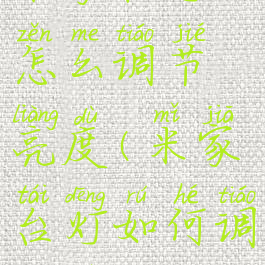 zěn me tiáo jié
怎么调节
liàng dù ( mǐ jiā
亮度(米家
tái dēng rú hé tiáo
台灯如何调